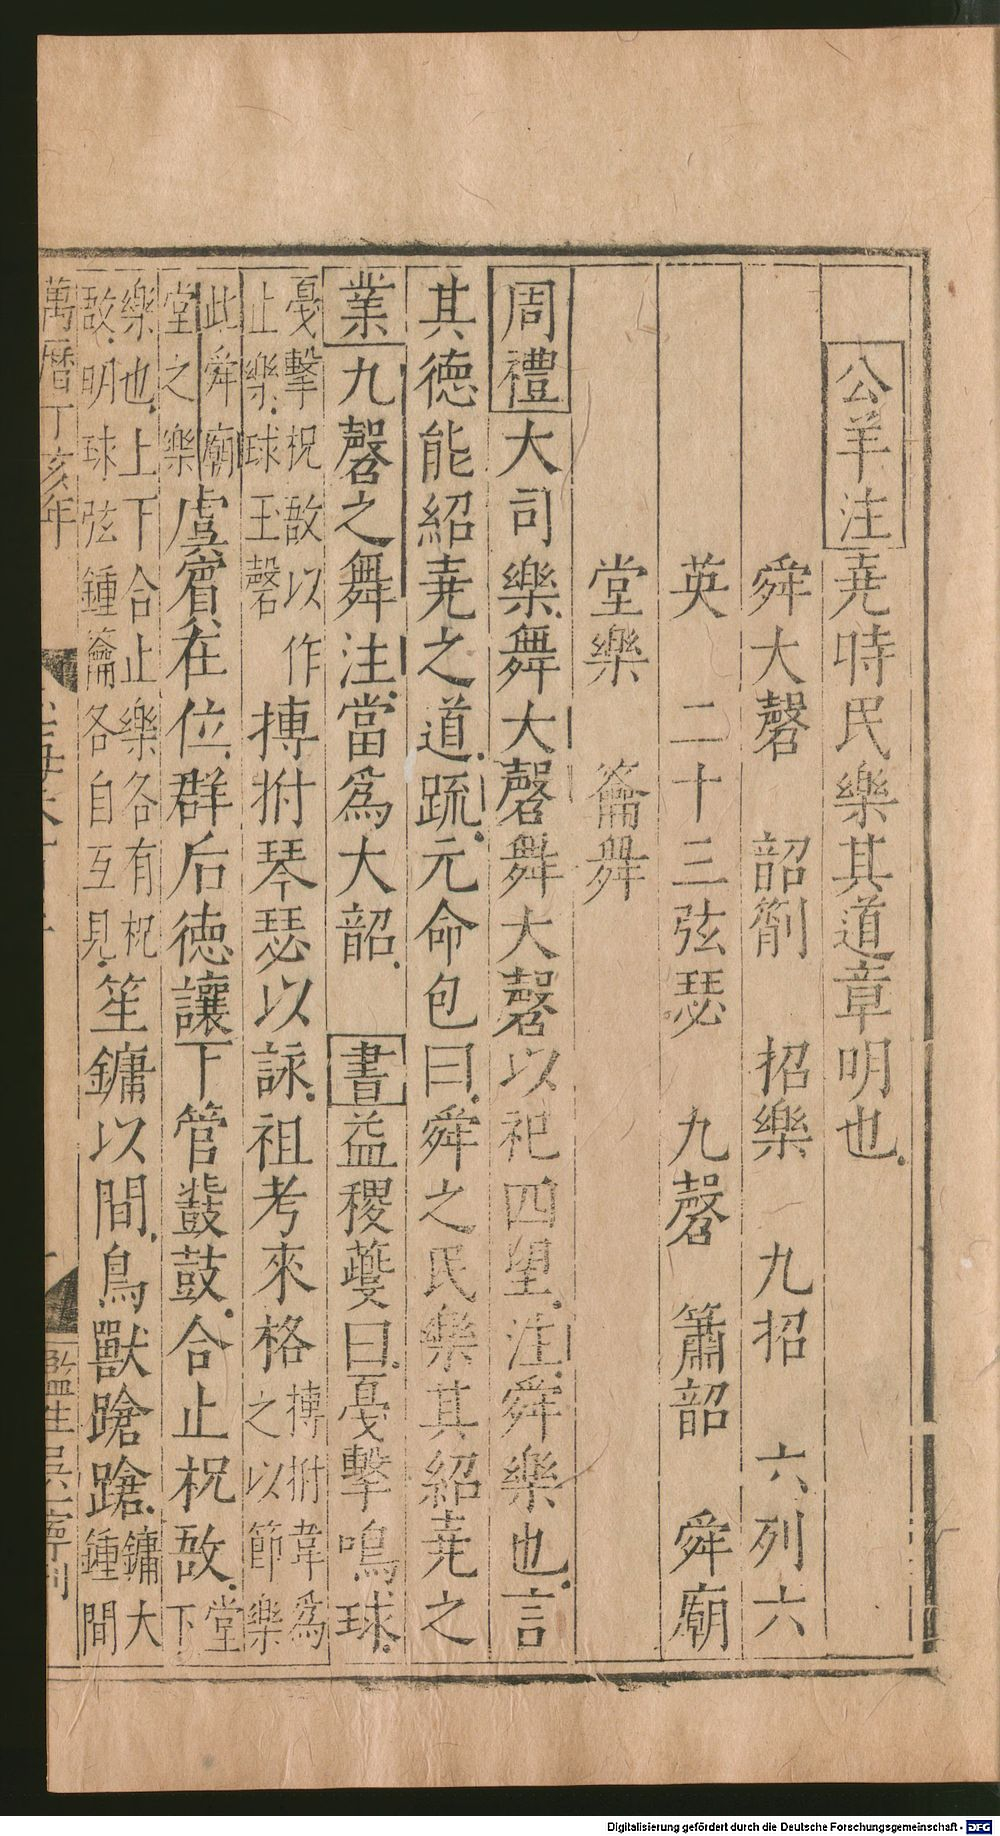 公羊注堯時民樂其道章明也
舜大㲈 韶箾 招樂 九招 六列六
英 二十三弦瑟 九㲈 簫韶 舜廟
堂樂 籥舞
周禮大司樂舞大㲈舞大㲈以祀四望注舜樂也言
其德能紹堯之道疏元命包曰舜之民樂其紹堯之
業九㲈之舞注當爲大韶 書益稷夔曰戞擊鳴球
戞擊柷敔以作
止樂球玉磬
搏拊琴瑟以詠祖考來格
搏拊韋爲
之以節樂
此舜廟
堂之樂
虞賓在位群后德讓下管鼗鼓合止柷敔
堂
下
樂也上下合止樂各有柷
敔明球弦鍾籥各自互見
笙鏞以間鳥獸蹌蹌
鏞大
鍾間
萬曆丁亥年
監生吳一寧刊
Digitalisierung gefördert durch die Deutsche Forschungsgemeinschaft - DFG